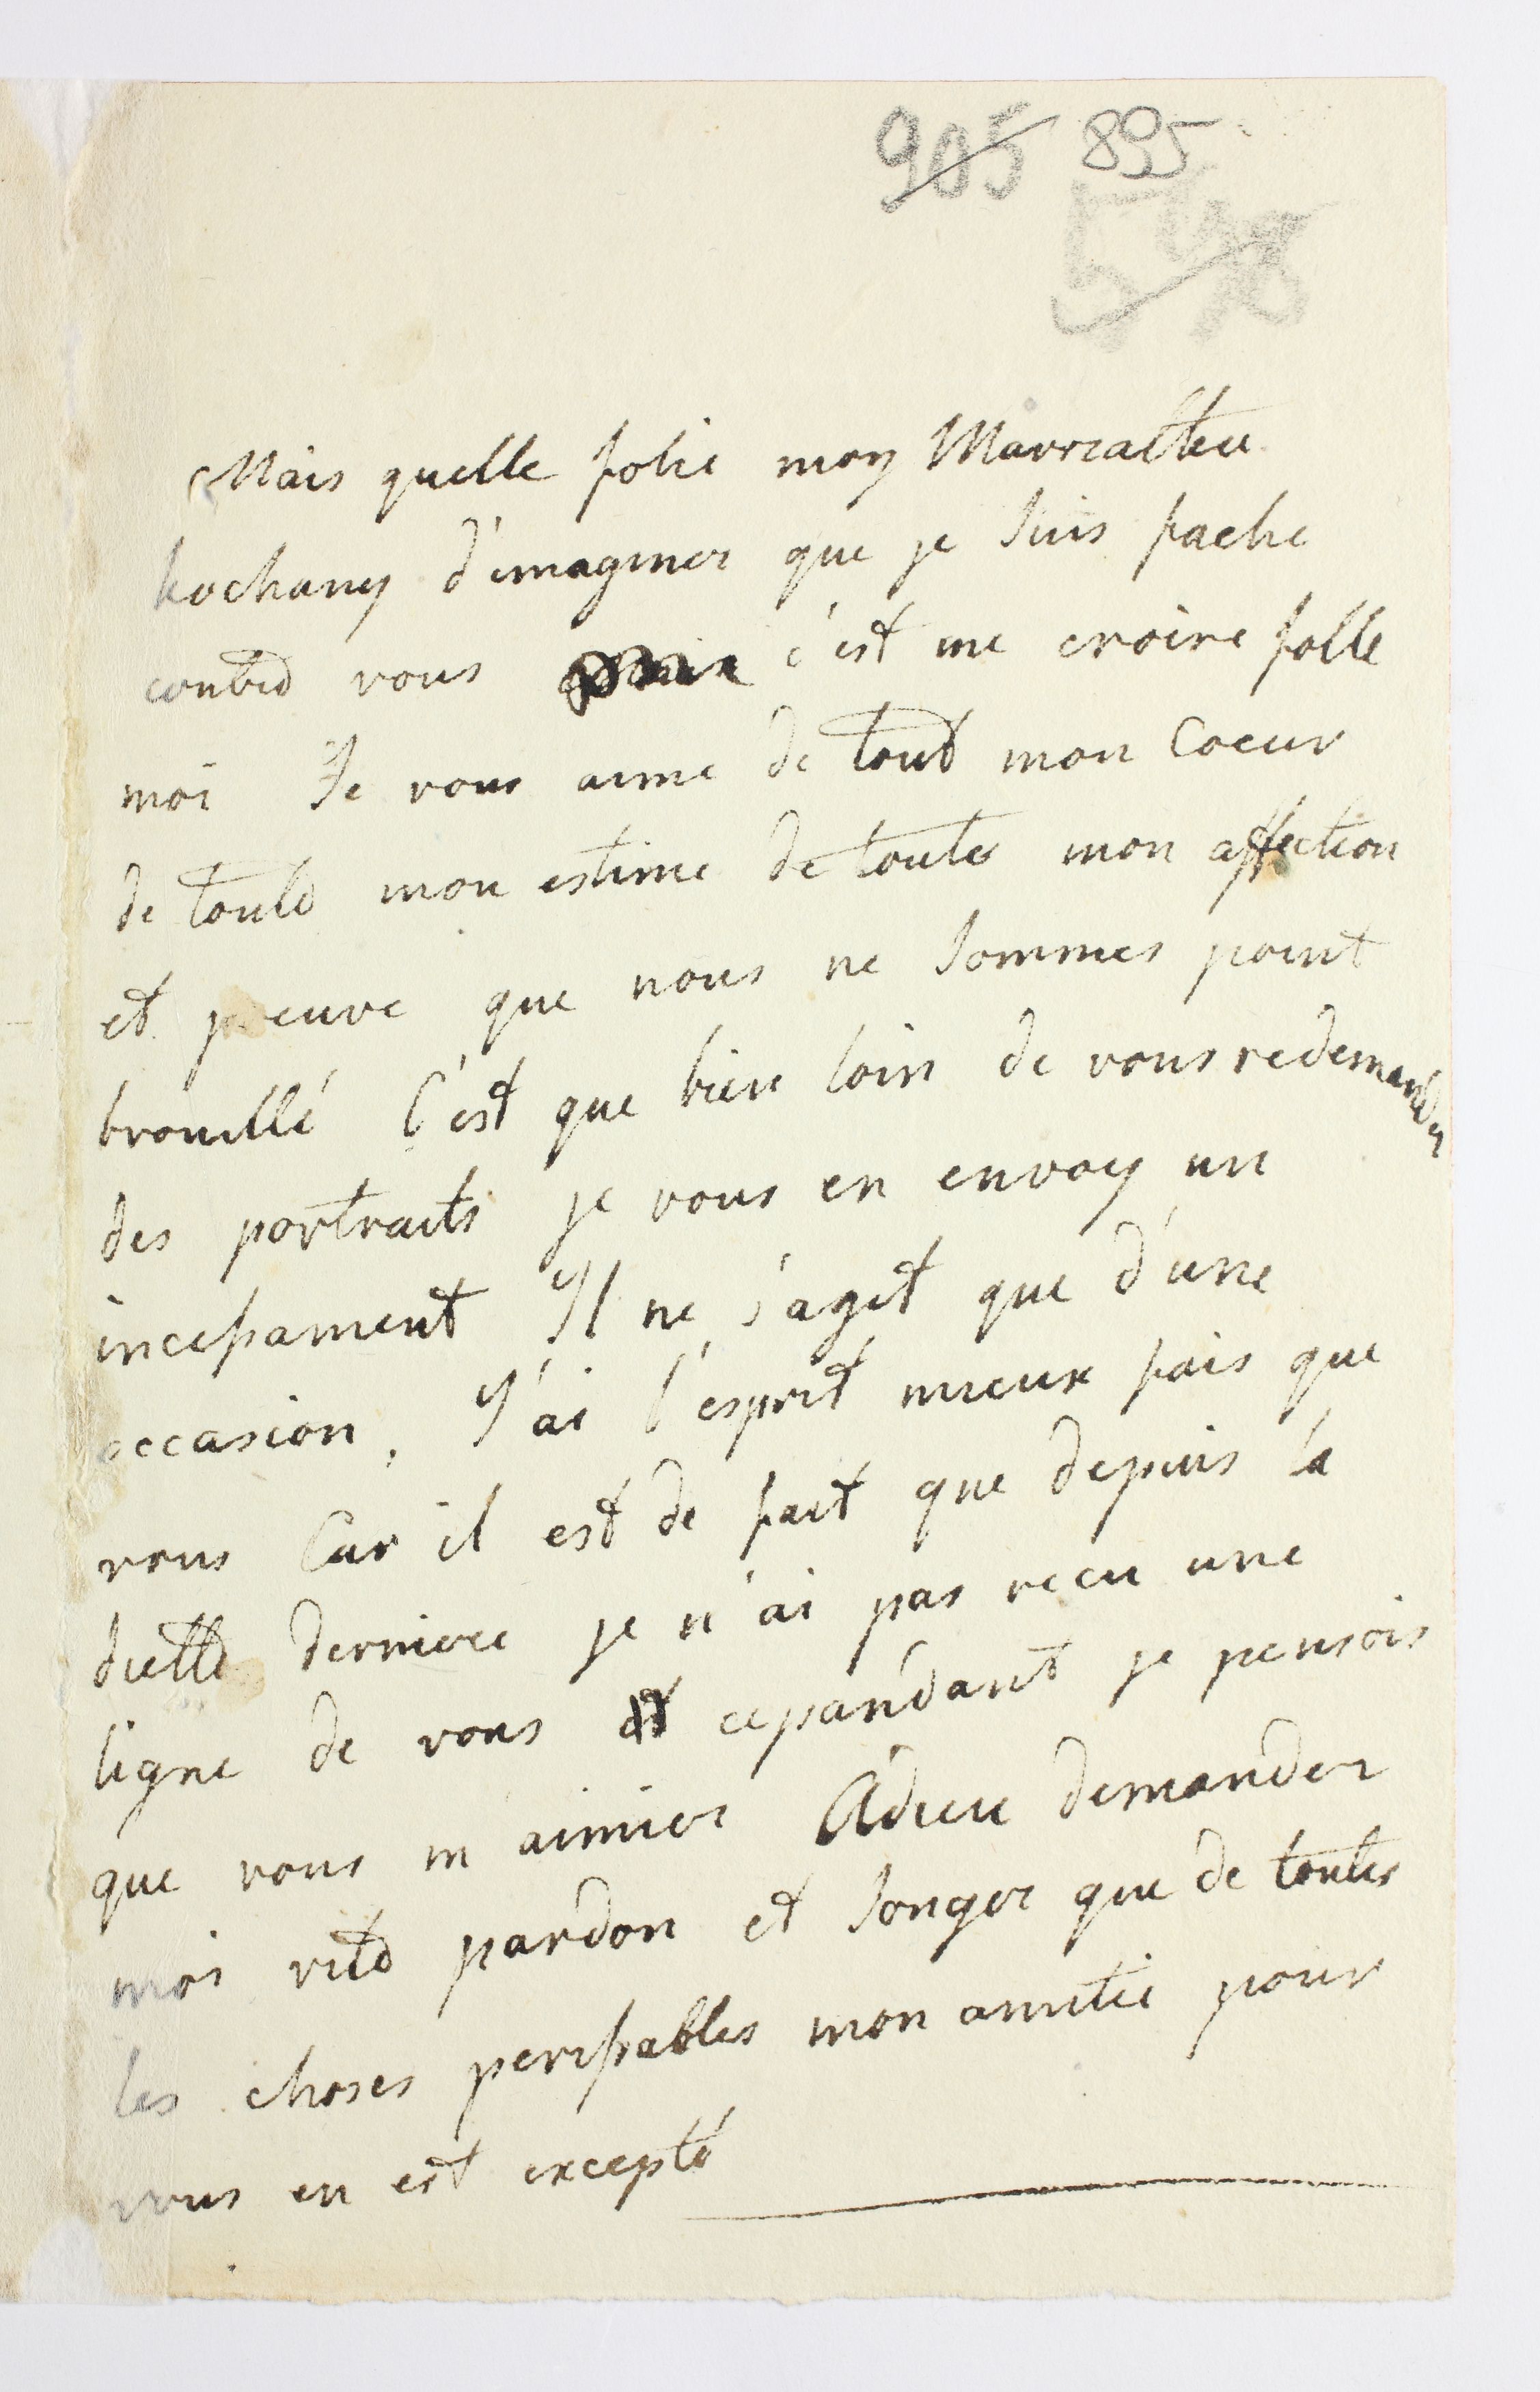 905 895
Mais quelle folie moy
kochany d'imaginer que je suis fache
contre vous c'est me croire folle
moi Je vous aime de tout mon Coeur
de toute mon estime de toute mon affection
et preuve que nous ne sommes point
brouillé C'est que bien loin de vous redemander
des portraits je vous en envoy un
incessament Il ne s'agit que d'une
occasion. J'ai l'esprit mieux fais que
vous Car il est de fait que depuis la
diette derniere je n'ai pas recu une
ligne de vous et cepandant je pensois
que vous m aimier Adieu demander
moi vite pardon et songer que de toutes
les choses perissables mon amitie pour
vous en est excepté